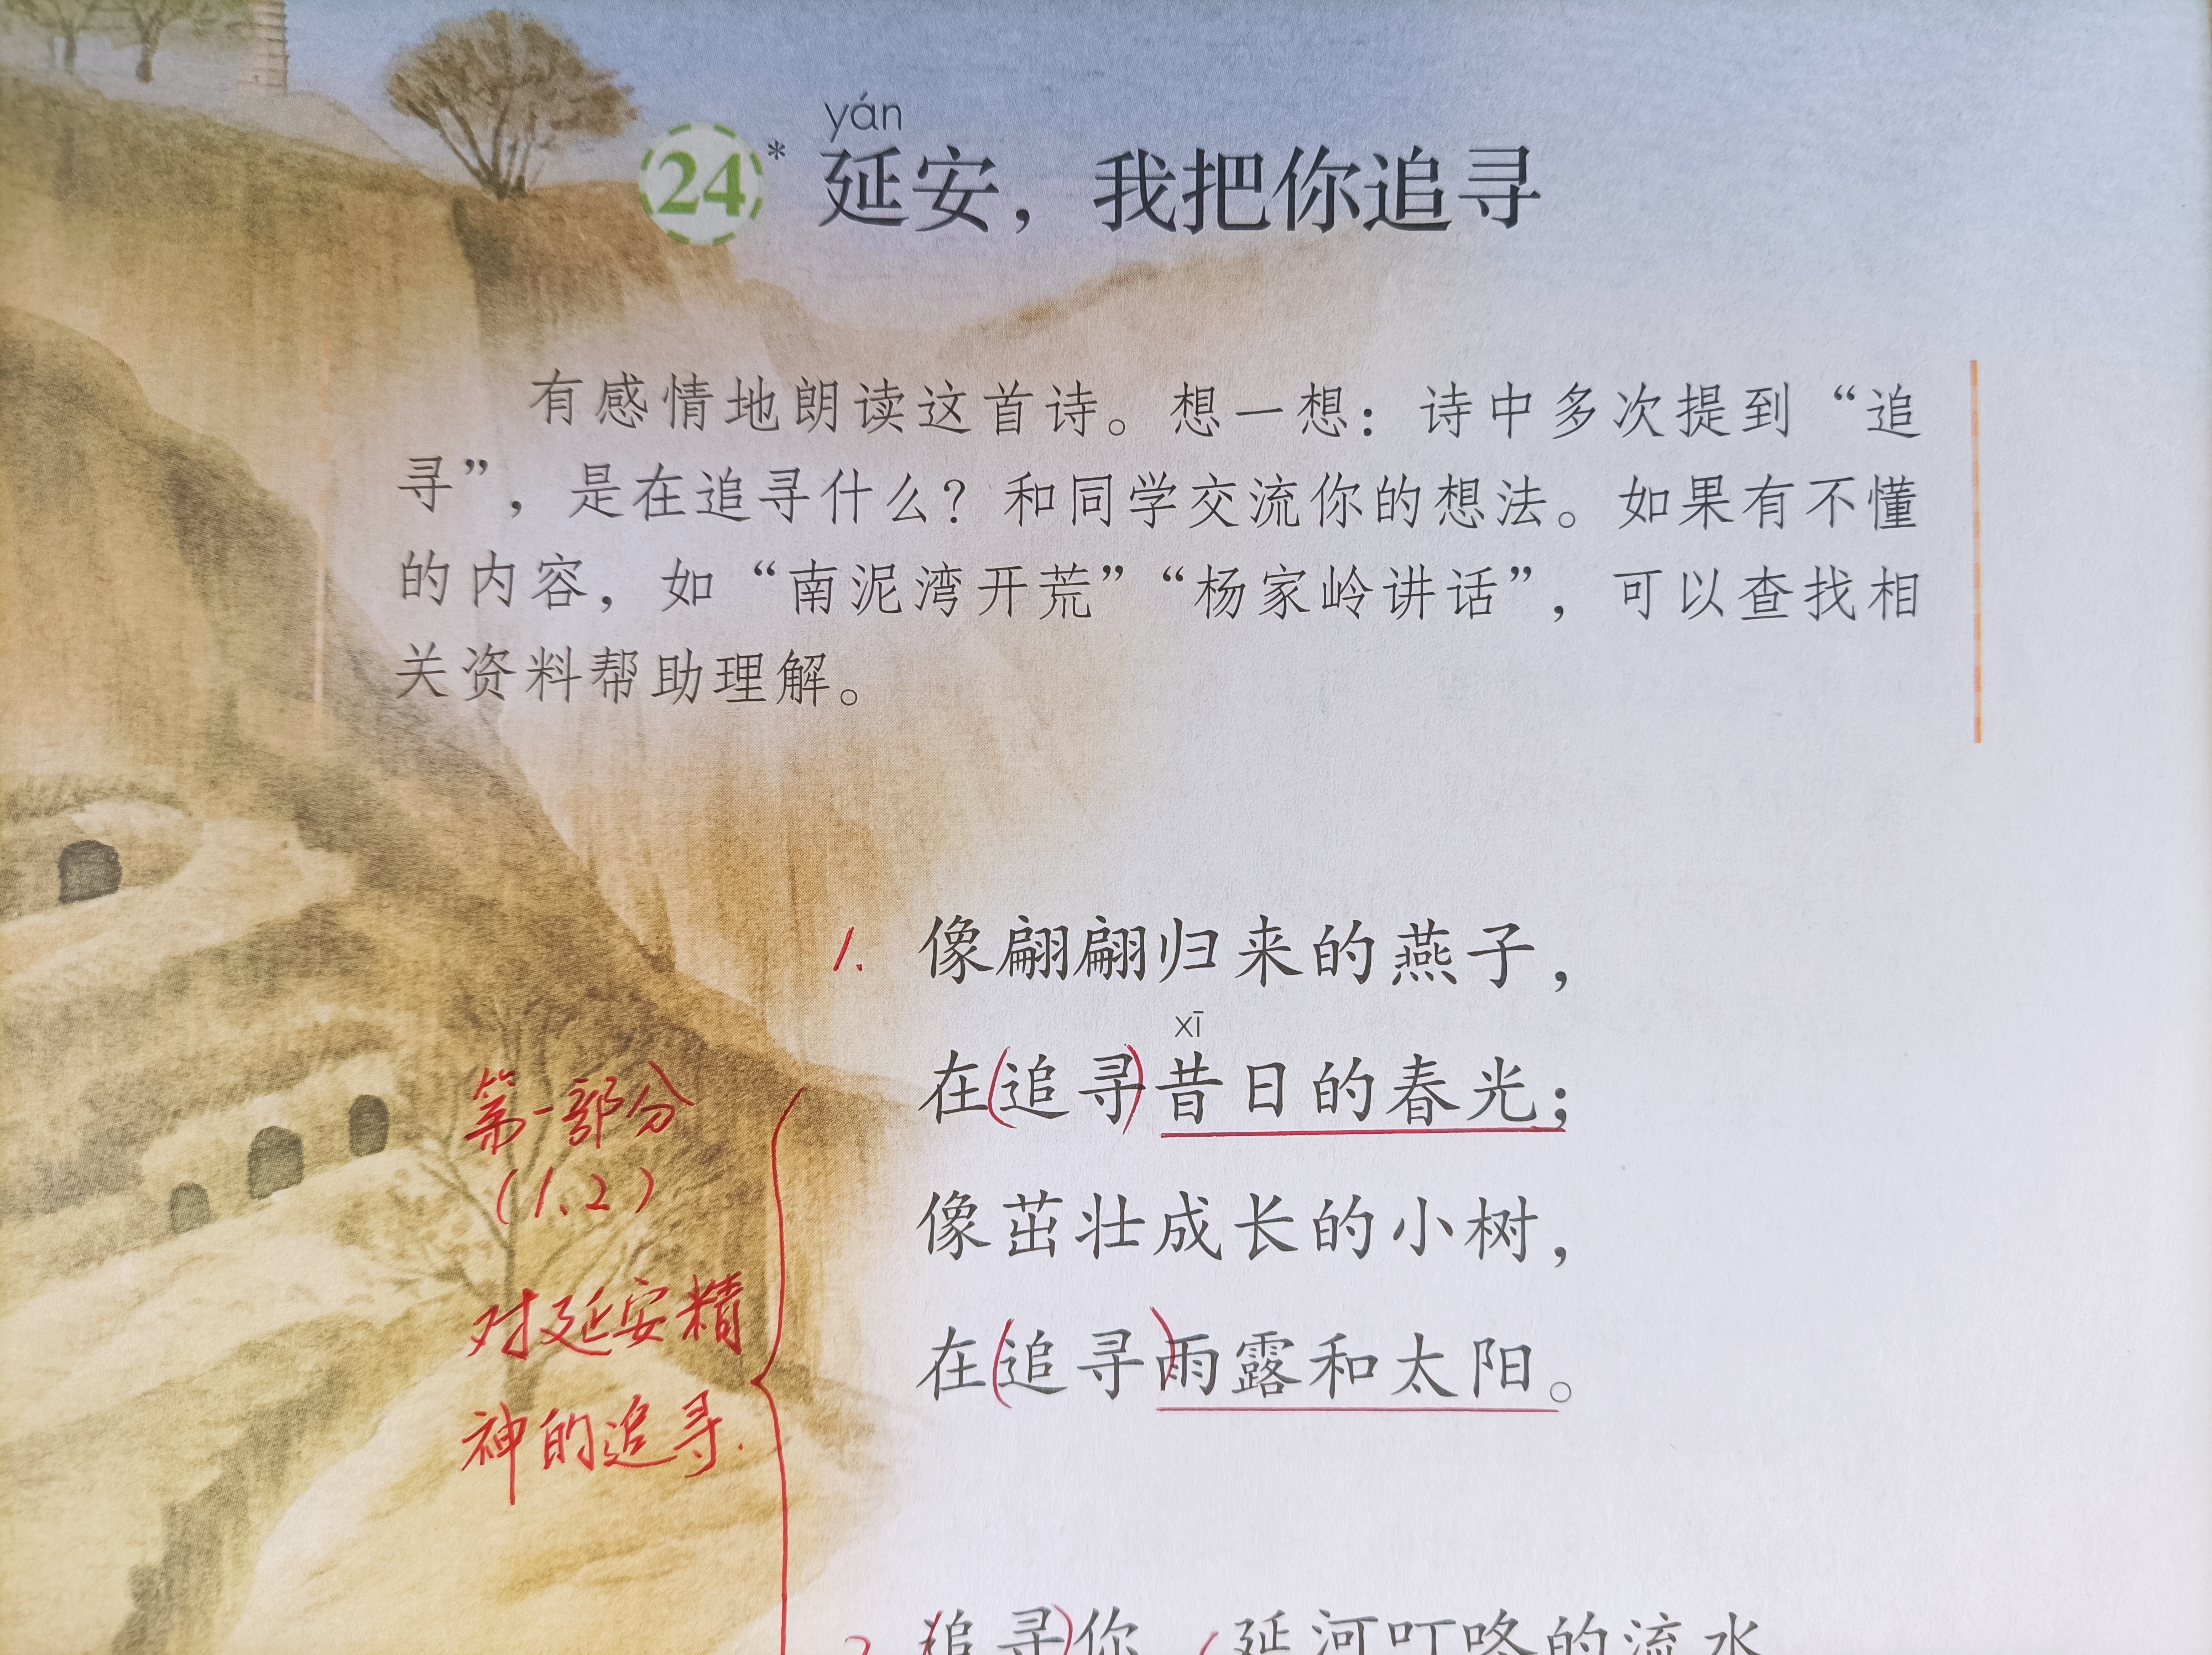 yán
24* 延安，我把你追寻
有感情地朗读这首诗。想一想：诗中多次提到“追
寻”，是在追寻什么？和同学交流你的想法。如果有不懂
的内容，如“南泥湾开荒”“杨家岭讲话”，可以查找相
关资料帮助理解。
1. 像翩翩归来的燕子，
xī
在(追寻)昔日的春光；
像茁壮成长的小树，
在(追寻)雨露和太阳。
第一部分
(1、2)
对延安精
神的追寻.
2. (追寻)你，(延河叮咚的流水